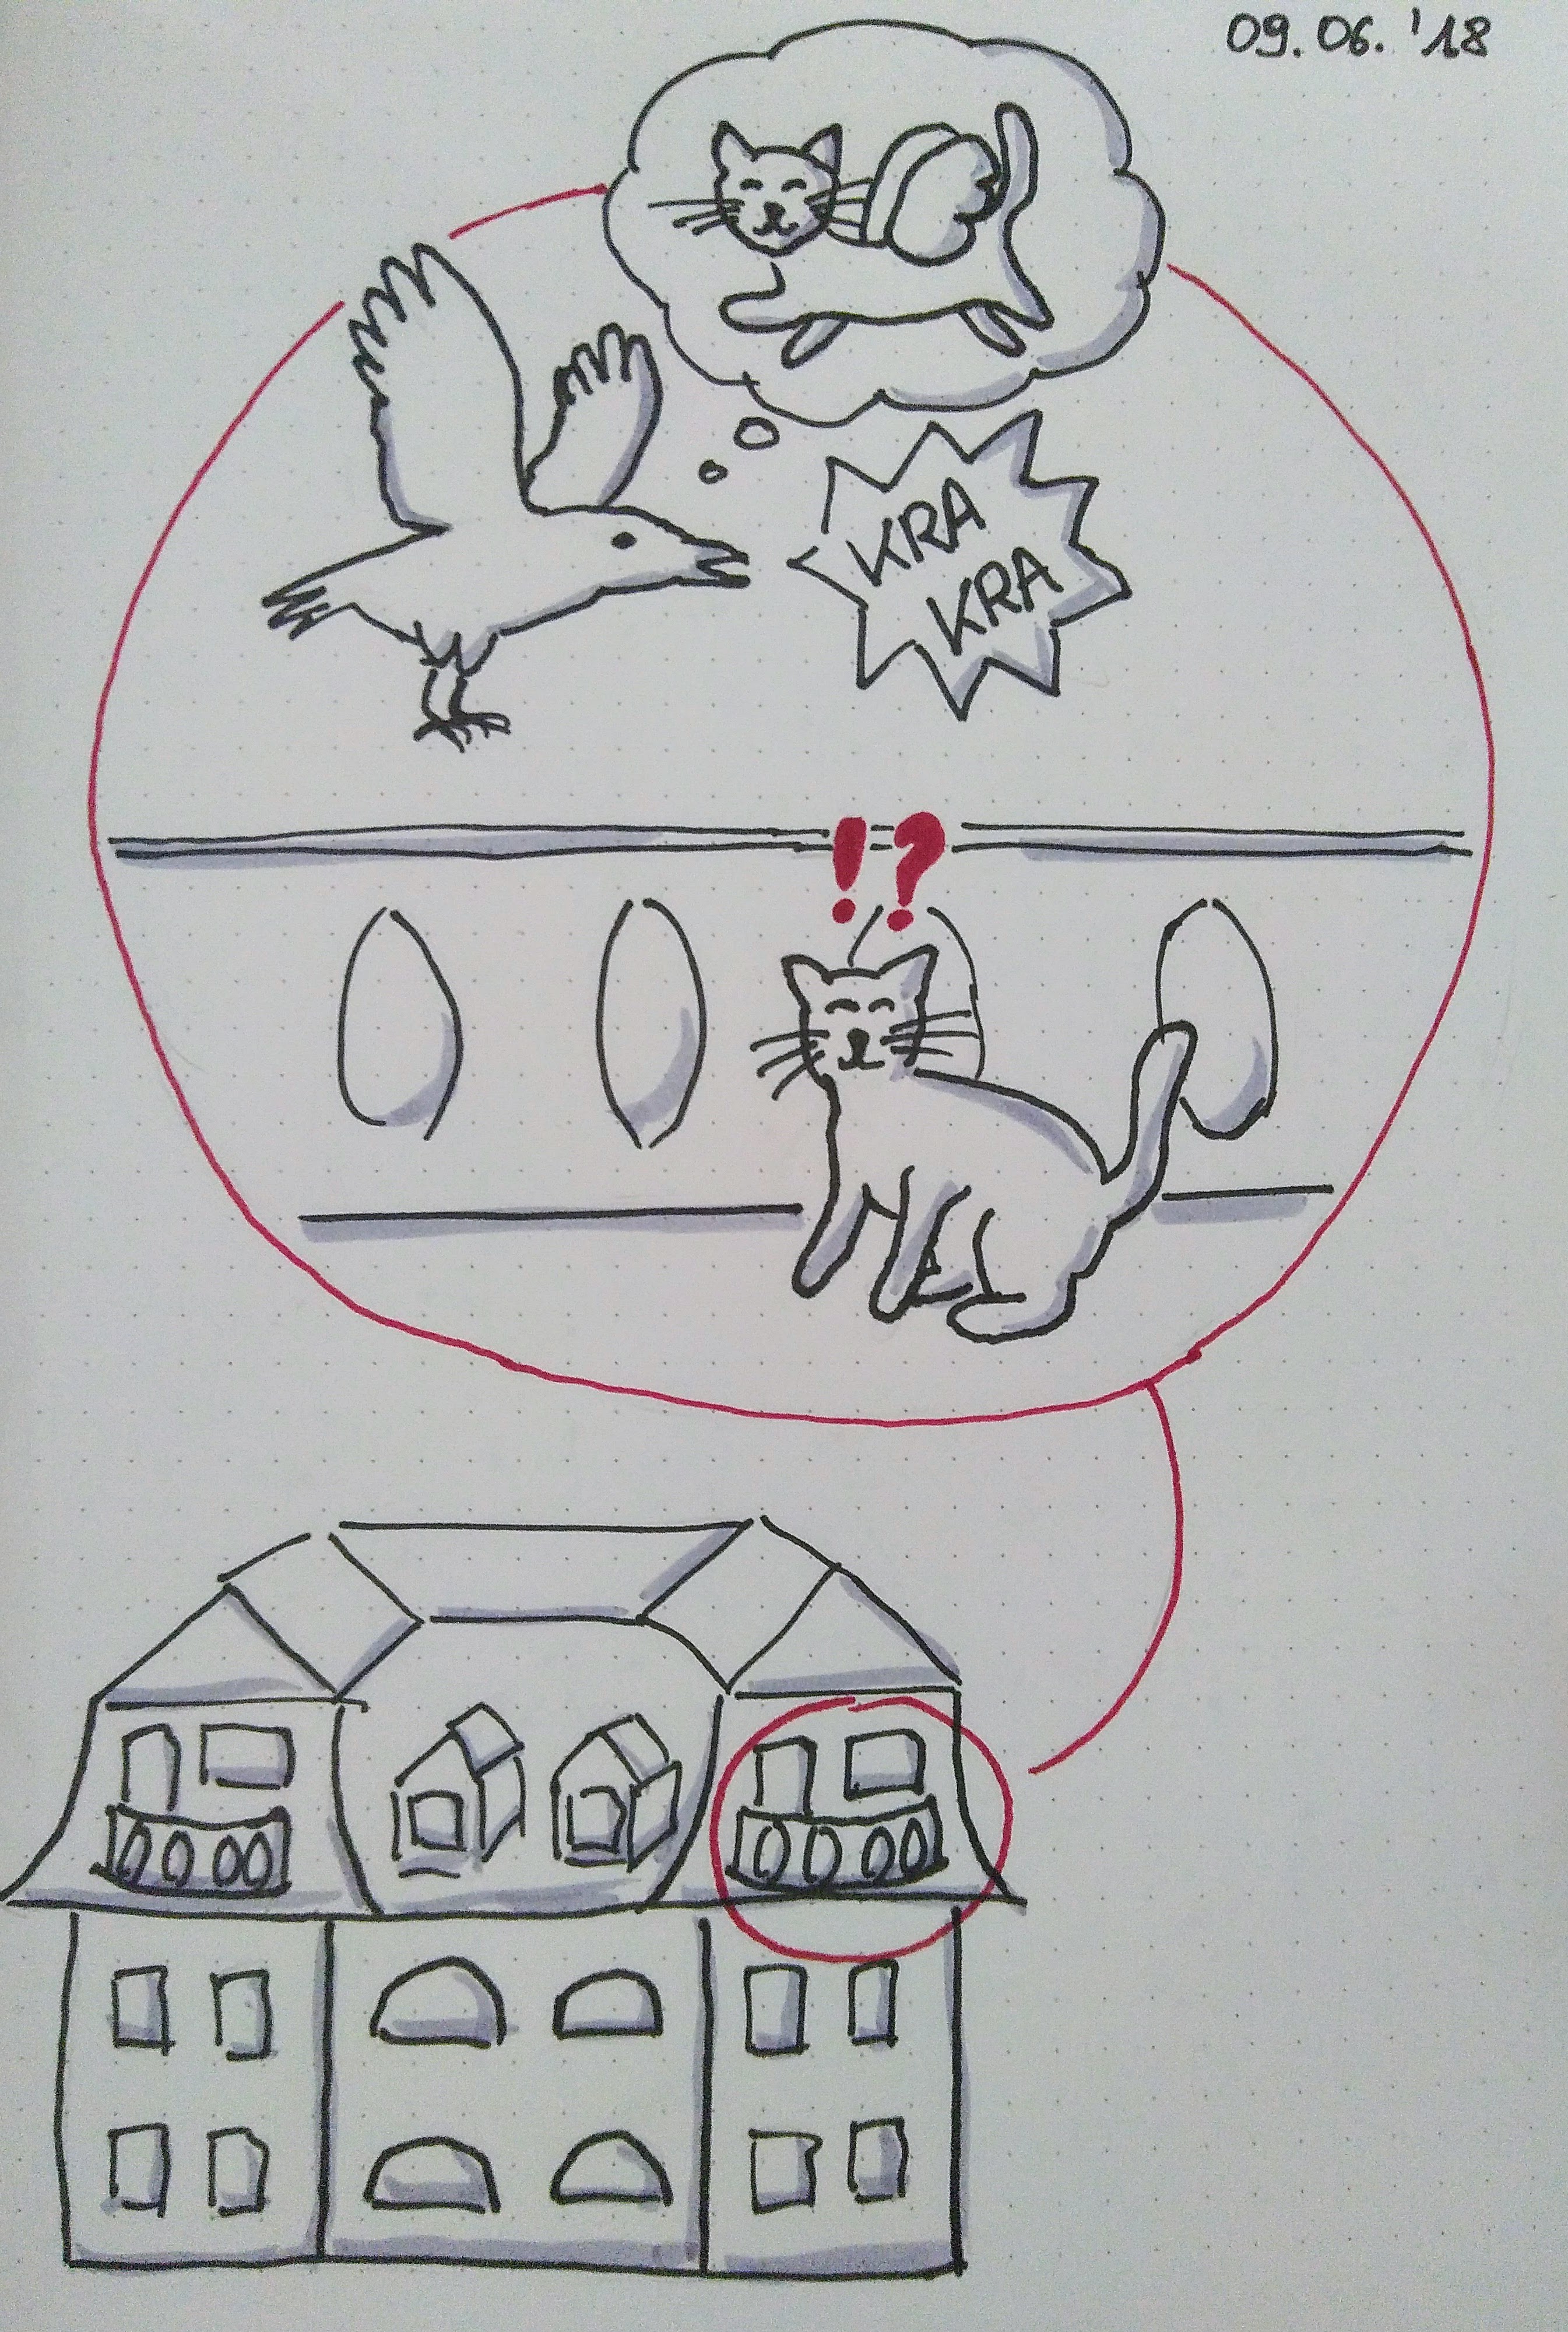 09.06.'18
KRA
KRA
!?